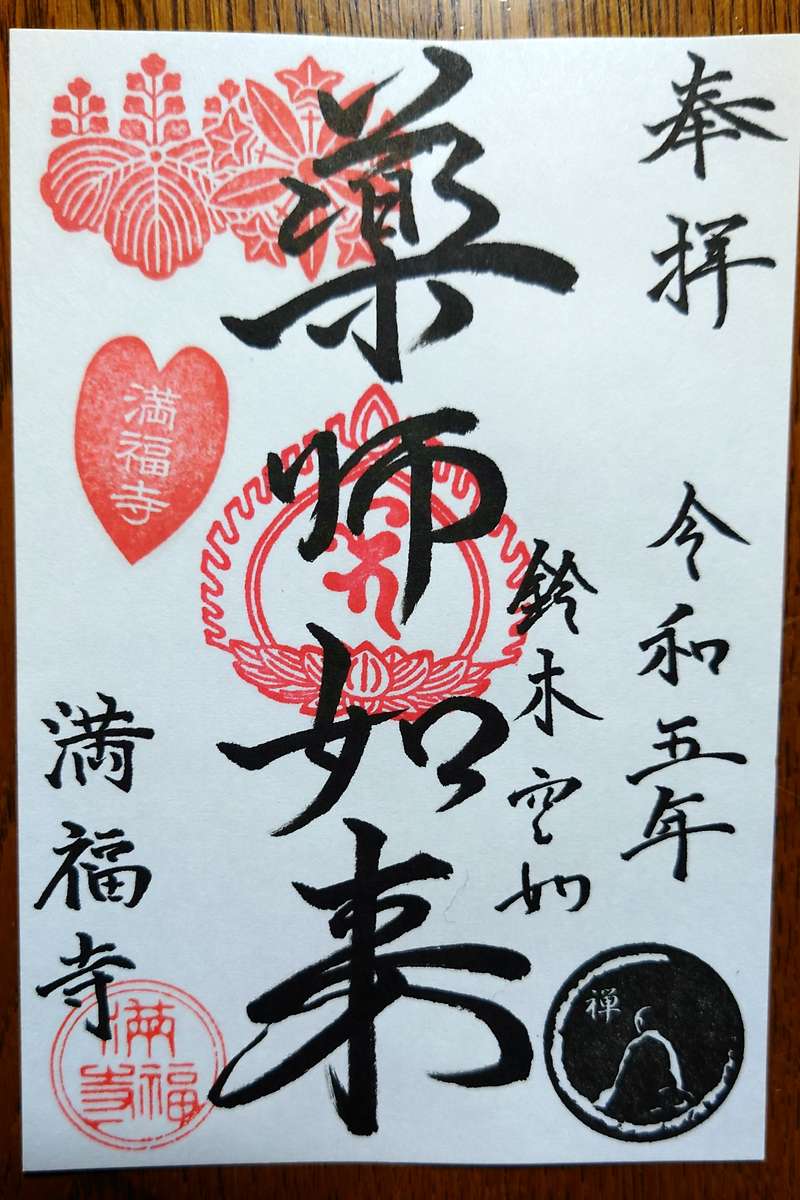 奉拝
令和五年
鈴木空如
薬師如来
満福寺
満福寺
満福寺
禅